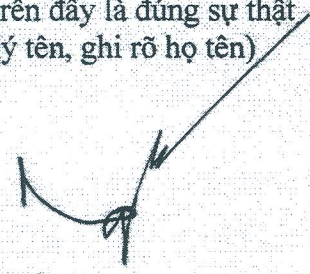 rên đây là đúng sự thật
ý tên, ghi rõ họ tên)